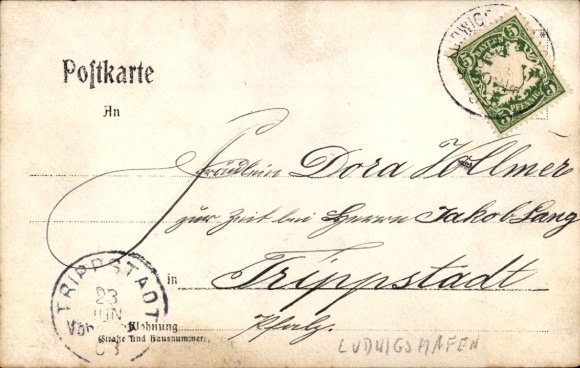 Postkarte
An
BAYERN
5
5
PFENNIG
Fräulein Dora Vollmer
zur Zeit bei Herrn Jakob Lang
in Trippstadt
Pfalz.
TRIPPSTADT
23
JUN
03
Wohnung
(Straße und Hausnummer)
LUDWIGSHAFEN